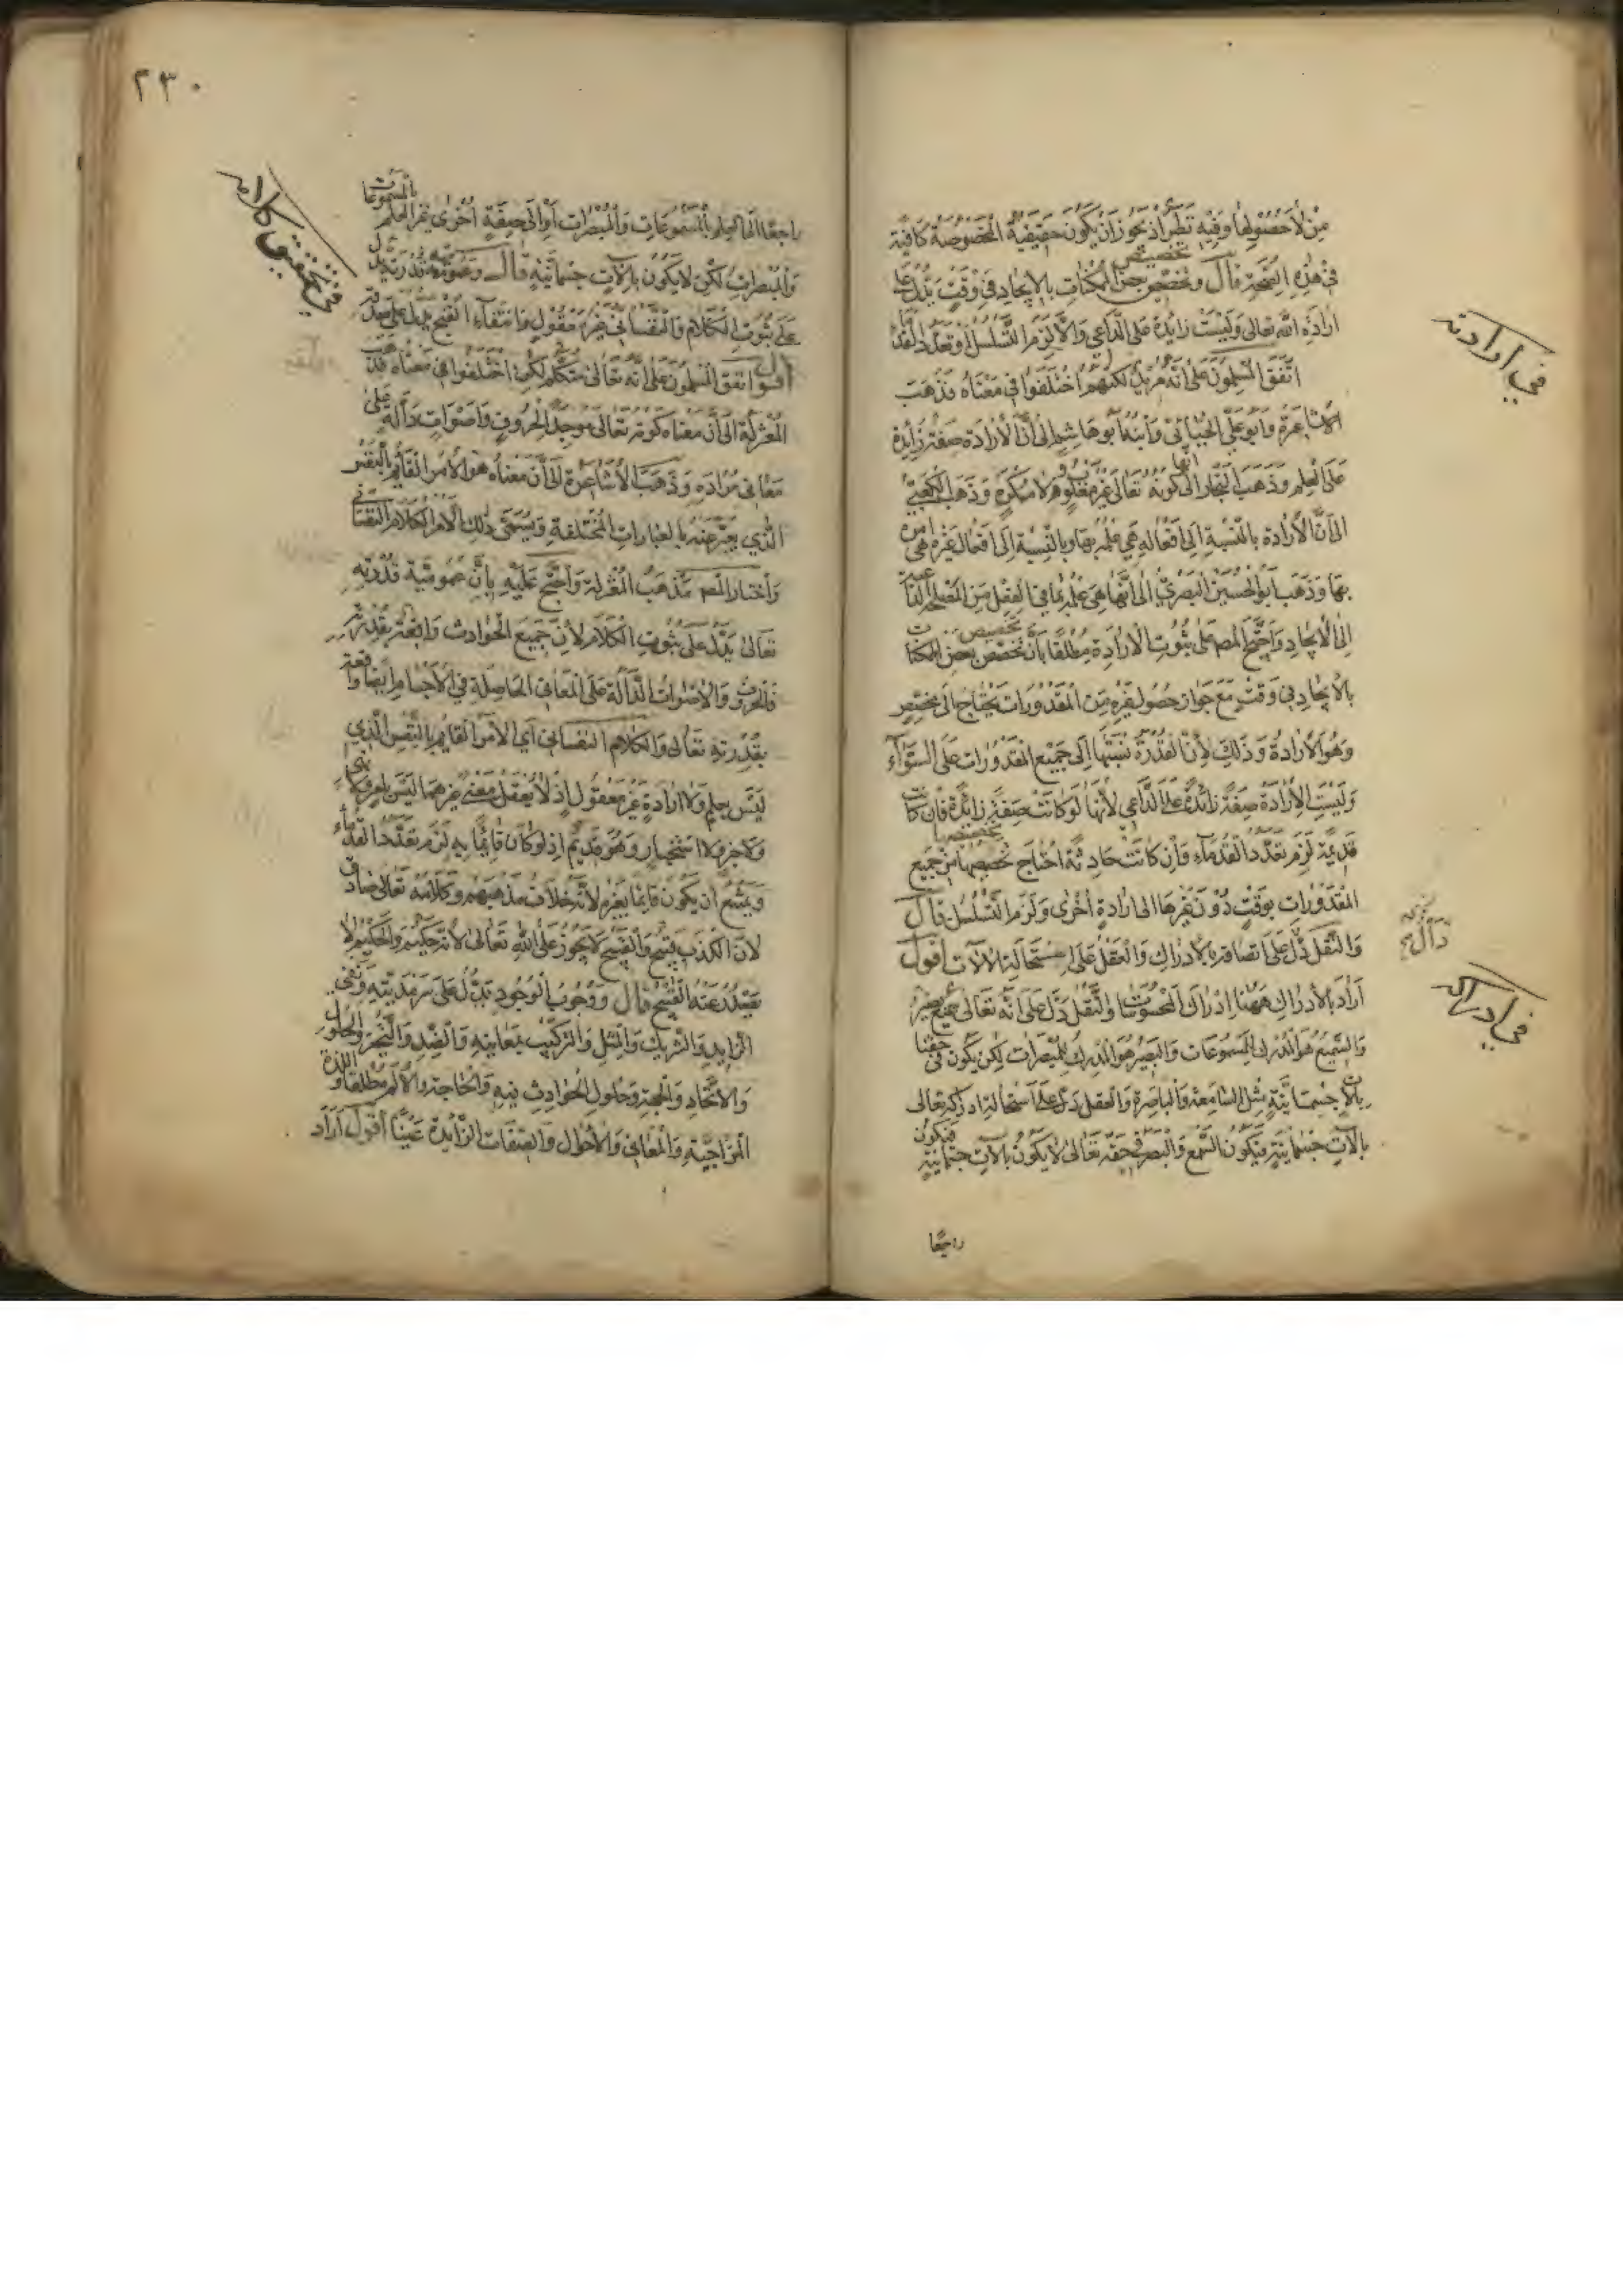 من لاحصولها وفيه نظر اذ يجوز ان يكون حقيقية المخصوصة كافية
في هذه الصحة قال وتخصيص بعض الممكنات بالايجاد في وقت يدل على
ارادة الله تعالى وليست زايدة على الداعي والا لزم التسلسل او تعدد القدماء
اتفق المسلمون على انه مريد لكنهم اختلفوا في معناه فذهب
الاشاعرة وابو علي الجبائي وابنه ابو هاشم الى ان الارادة صفة زايدة
على العلم وذهب النجار الى كونه تعالى غير مغلوب ولا مكره وذهب الكعبي
الى ان الارادة بالنسبة الى افعاله هي علمه بها وبالنسبة الى افعال غيره هي امره
بها وذهب ابو الحسين البصري الى انها هي علمه بما في الفعل من المصلحة الداعية
الى الايجاد واحتج المص على ثبوت الارادة مطلقا بان تخصيص بعض الممكنات
بالايجاد في وقت مع جواز حصول غيره من المقدورات يحتاج الى مخصص
وهو الارادة وذلك لان القدرة نسبتها الى جميع المقدورات على السواء
وليست الارادة صفة زائدة على الداعي لانها لو كانت صفة زائدة فان كانت
قديمة لزم تعدد القدماء وان كانت حادثة احتاج تخصيصها من جميع
المقدورات بوقت دون غيرها الى ارادة اخرى ولزم التسلسل قال
والنقل دل على اتصافه بالادراك والعقل على استحالة الالات اقول
اراد بالادراك ههنا ادراك المحسوسات والنقل دل على انه تعالى سميع بصير
والسميع هو المدرك للمسموعات والبصير هو المدرك للمبصرات لكن يكون في حقنا
بالات جسمانية مثل السامعة والباصرة والعقل دل على استحالة ادراكه تعالى
بالات جسمانية فيكون السمع والبصر في حقه تعالى لا يكون بالات جسمانية فيكون
راجعا
في ارادته
في ادراكه
٢٣٠
راجعا الى العلم بالمسموعات والمبصرات او الى حقيقة اخرى غير العلم بالمسموعات
والمبصرات لكن لا يكون بالات جسمانية قال وعمومية قدرته يدل
على ثبوت الكلام والنفساني غير معقول وانتفاء القبح يدل على صدقه
اقول اتفق المسلمون على انه تعالى متكلم لكن اختلفوا في معناه فذهب
المعتزلة الى ان معناه كونه تعالى موجد الحروف واصوات دالة على
معاني مرادة وذهب الاشاعرة الى ان معناه هو الامر القائم بالنفس
الذي يعبر عنه بالعبارات المختلفة ويسمى ذلك الامر الكلام النفساني
واختار المص مذهب المعتزلة واحتج عليه بان عمومية قدرته
تعالى يدل على ثبوت الكلام لان جميع الحوادث واقعة بقدرته
فالحروف والاصوات الدالة على المعاني الحاصلة في الاجسام ايضا واقعة
بقدرته تعالى والكلام النفساني اي الامر القايم بالنفس الذي
ليس بعلم ولا ارادة غير معقول اذ لا يعقل معنى غيرهما ليس بامر ولا نهي
ولا خبر ولا استخبار وهو قديم اذ لو كان قائما به لزم تعدد القدماء
ويمتنع ان يكون قائما بغيره لانه خلاف مذهبهم وكلامه تعالى صادق
لان الكذب قبيح والقبيح لا يجوز على الله تعالى لانه حكيم والحكيم لا
يصدر عنه القبيح قال ووجوب الوجود يدل على سرمديته ونفي
الزايد والشريك والمثل والتركيب بمعانيه والضد والتحيز والحلول
والاتحاد والجهة وحلول الحوادث فيه والحاجة والالم مطلقا واللذة
المزاجية والمعاني والاحوال والصفات الزائدة عينا اقول اراد
في تحقيق كلامه